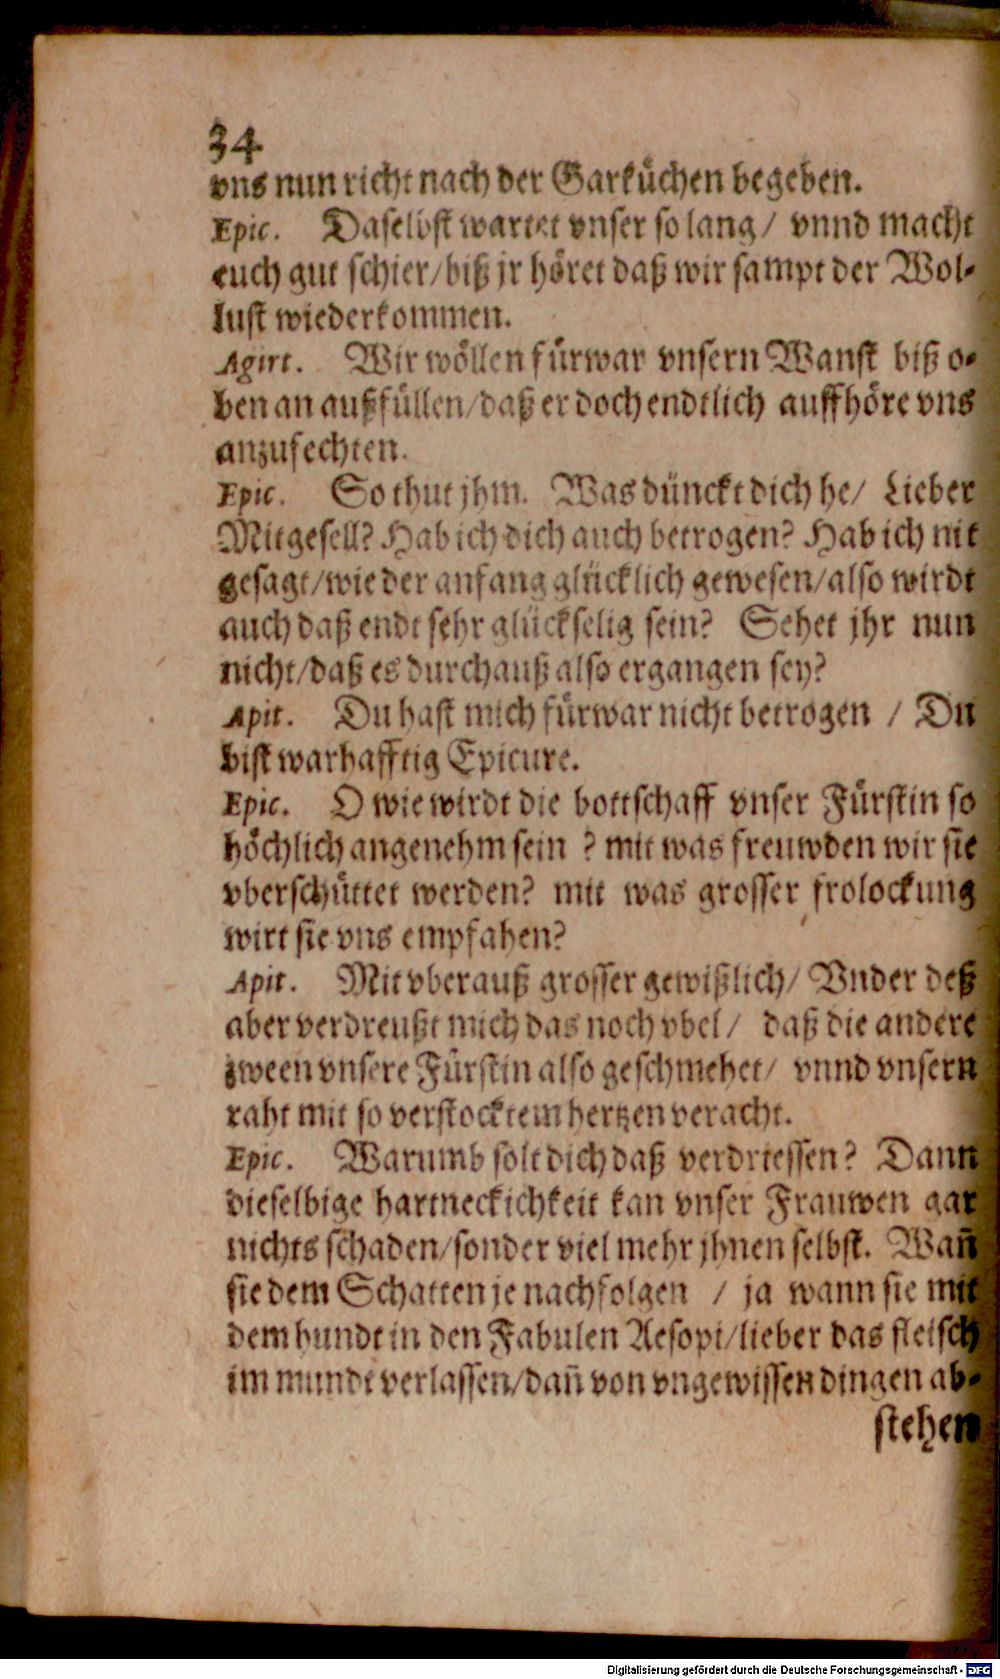 34
vns nun richt nach der Garküchen begeben.
Epic. Daselbst wartet vnser so lang / vnnd macht
euch gut schier / biß jr höret daß wir sampt der Wol-
lust wiederkommen.
Agirt. Wir wöllen fürwar vnsern Wanst biß o-
ben an außfüllen / daß er doch endtlich auffhöre vns
anzufechten.
Epic. So thut jhm. Was dünckt dich he / Lieber
Mitgesell? Hab ich dich auch betrogen? Hab ich nit
gesagt / wie der anfang glücklich gewesen / also wirdt
auch daß endt sehr glückselig sein? Sehet jhr nun
nicht / daß es durchauß also ergangen sey?
Apit. Du hast mich fürwar nicht betrogen / Du
bist warhafftig Epicure.
Epic. O wie wirdt die bottschaff vnser Fürstin so
höchlich angenehm sein ? mit was freuwden wir sie
vberschüttet werden? mit was grosser frolockung
wirt sie vns empfahen?
Apit. Mit vberauß grosser gewißlich / Vnder deß
aber verdreußt mich das noch vbel / daß die andere
zween vnsere Fürstin also geschmehet / vnnd vnsern
raht mit so verstocktem hertzen veracht.
Epic. Warumb solt dich daß verdriessen? Dann
dieselbige hartneckichkeit kan vnser Frauwen gar
nichts schaden / sonder viel mehr jhnen selbst. Wañ
sie dem Schatten je nachfolgen / ja wann sie mit
dem hundt in den Fabulen Aesopi / lieber das fleisch
im mundt verlassen / dañ von vngewissen dingen ab-
stehen
Digitalisierung gefördert durch die Deutsche Forschungsgemeinschaft - DFG